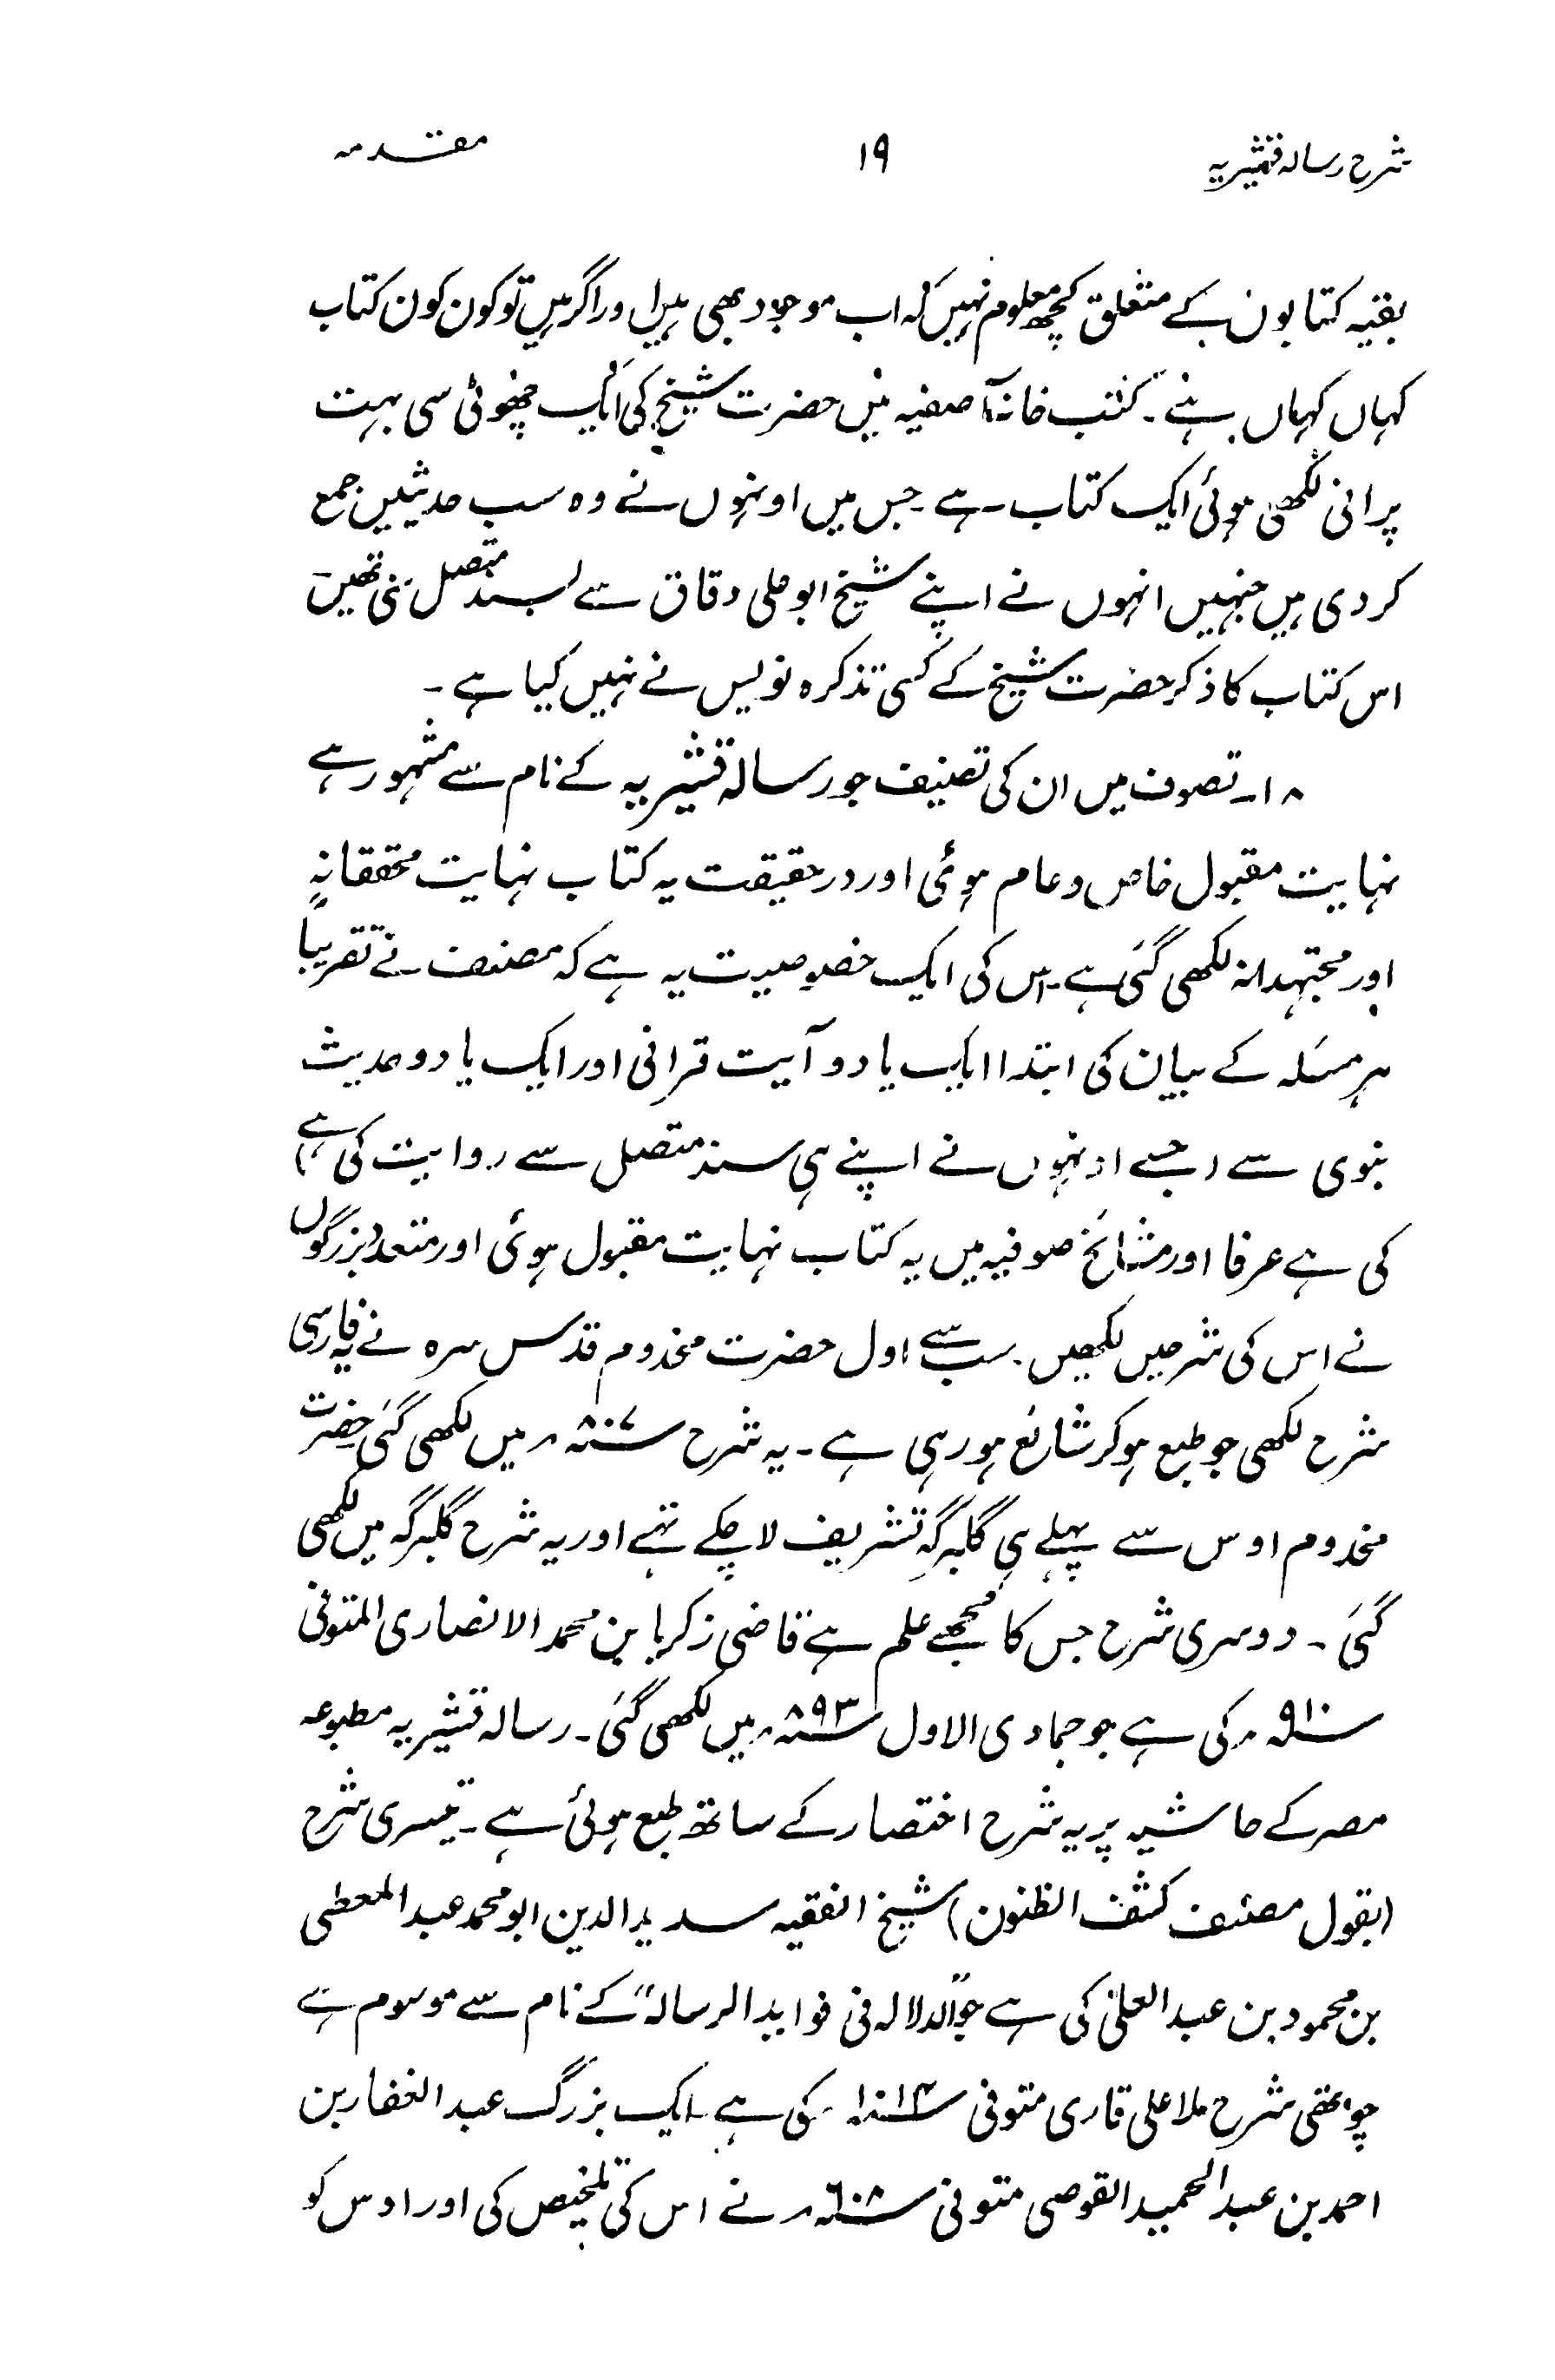 شرح رسالہ قشیریہ ۱۹ مقدمہ
بقیہ کتابوں کے متعلق کچھ معلوم نہیں کہ اب موجود بھی ہیں اور اگر ہیں تو کون کون کتاب
کہاں کہاں ہے۔ کتب خانہ آصفیہ میں حضرت شیخ کی ایک چھوٹی سی بہت
پرانی لکھی ہوئی ایک کتاب ہے۔ جس میں اونہوں نے وہ سب حدیثیں جمع
کر دی ہیں جنہیں انہوں نے اپنے شیخ ابو علی دقاق سے بسند متصل سنی تھیں۔
اس کتاب کا ذکر حضرت شیخ کے کسی تذکرہ نویس نے نہیں کیا ہے۔
۱۸۔ تصوف میں ان کی تصنیف جو رسالہ قشیریہ کے نام سے مشہور ہے
نہایت مقبول خاص و عام ہوئی اور درحقیقت یہ کتاب نہایت محققانہ
اور مجتہدانہ لکھی گئی ہے۔ اس کی ایک خصوصیت یہ ہے کہ مصنف نے تقریباً
ہر مسئلہ کے بیان کی ابتدا ایک یا دو آیت قرانی اور ایک یا دو حدیث
نبوی سے (جسے اونہوں نے اپنے ہی سند متصل سے روایت کی ہے)
کی ہے عرفا اور مشائخ صوفیہ میں یہ کتاب نہایت مقبول ہوئی اور متعدد بزرگوں
نے اس کی شرحیں لکھیں۔ سب سے اول حضرت مخدوم قدس سرہ نے یہ فارسی
شرح لکھی جو طبع ہو کر شائع ہو رہی ہے۔ یہ شرح ۸۰۷ھ میں لکھی گئی حضرت
مخدوم اوس سے پہلے ہی گلبرگہ تشریف لا چکے تہے اور یہ شرح گلبرگہ میں لکھی
گئی۔ دوسری شرح جس کا مجھے علم ہے قاضی زکریا بن محمد الانصاری المتوفی
۹۱۰ھ کی ہے جو جمادی الاول ۸۹۳ھ میں لکھی گئی۔ رسالہ قشیریہ مطبوعہ
مصر کے حاشیہ پر یہ شرح اختصار کے ساتھ طبع ہوئی ہے۔ تیسری شرح
(بقول مصنف کشف الظنون) شیخ الفقیہ سدید الدین ابو محمد عبد المعطی
بن محمود بن عبد العلی کی ہے جو "الدلالہ فی فواید الرسالہ" کے نام سے موسوم ہے
چوتھی شرح ملا علی قاری متوفی ۱۰۱۴ھ کی ہے۔ ایک بزرگ عبد الغفار بن
احمد بن عبد الحمید القوصی متوفی ۶۰۸ھ نے اس کی تلخیص کی اور اوس کو